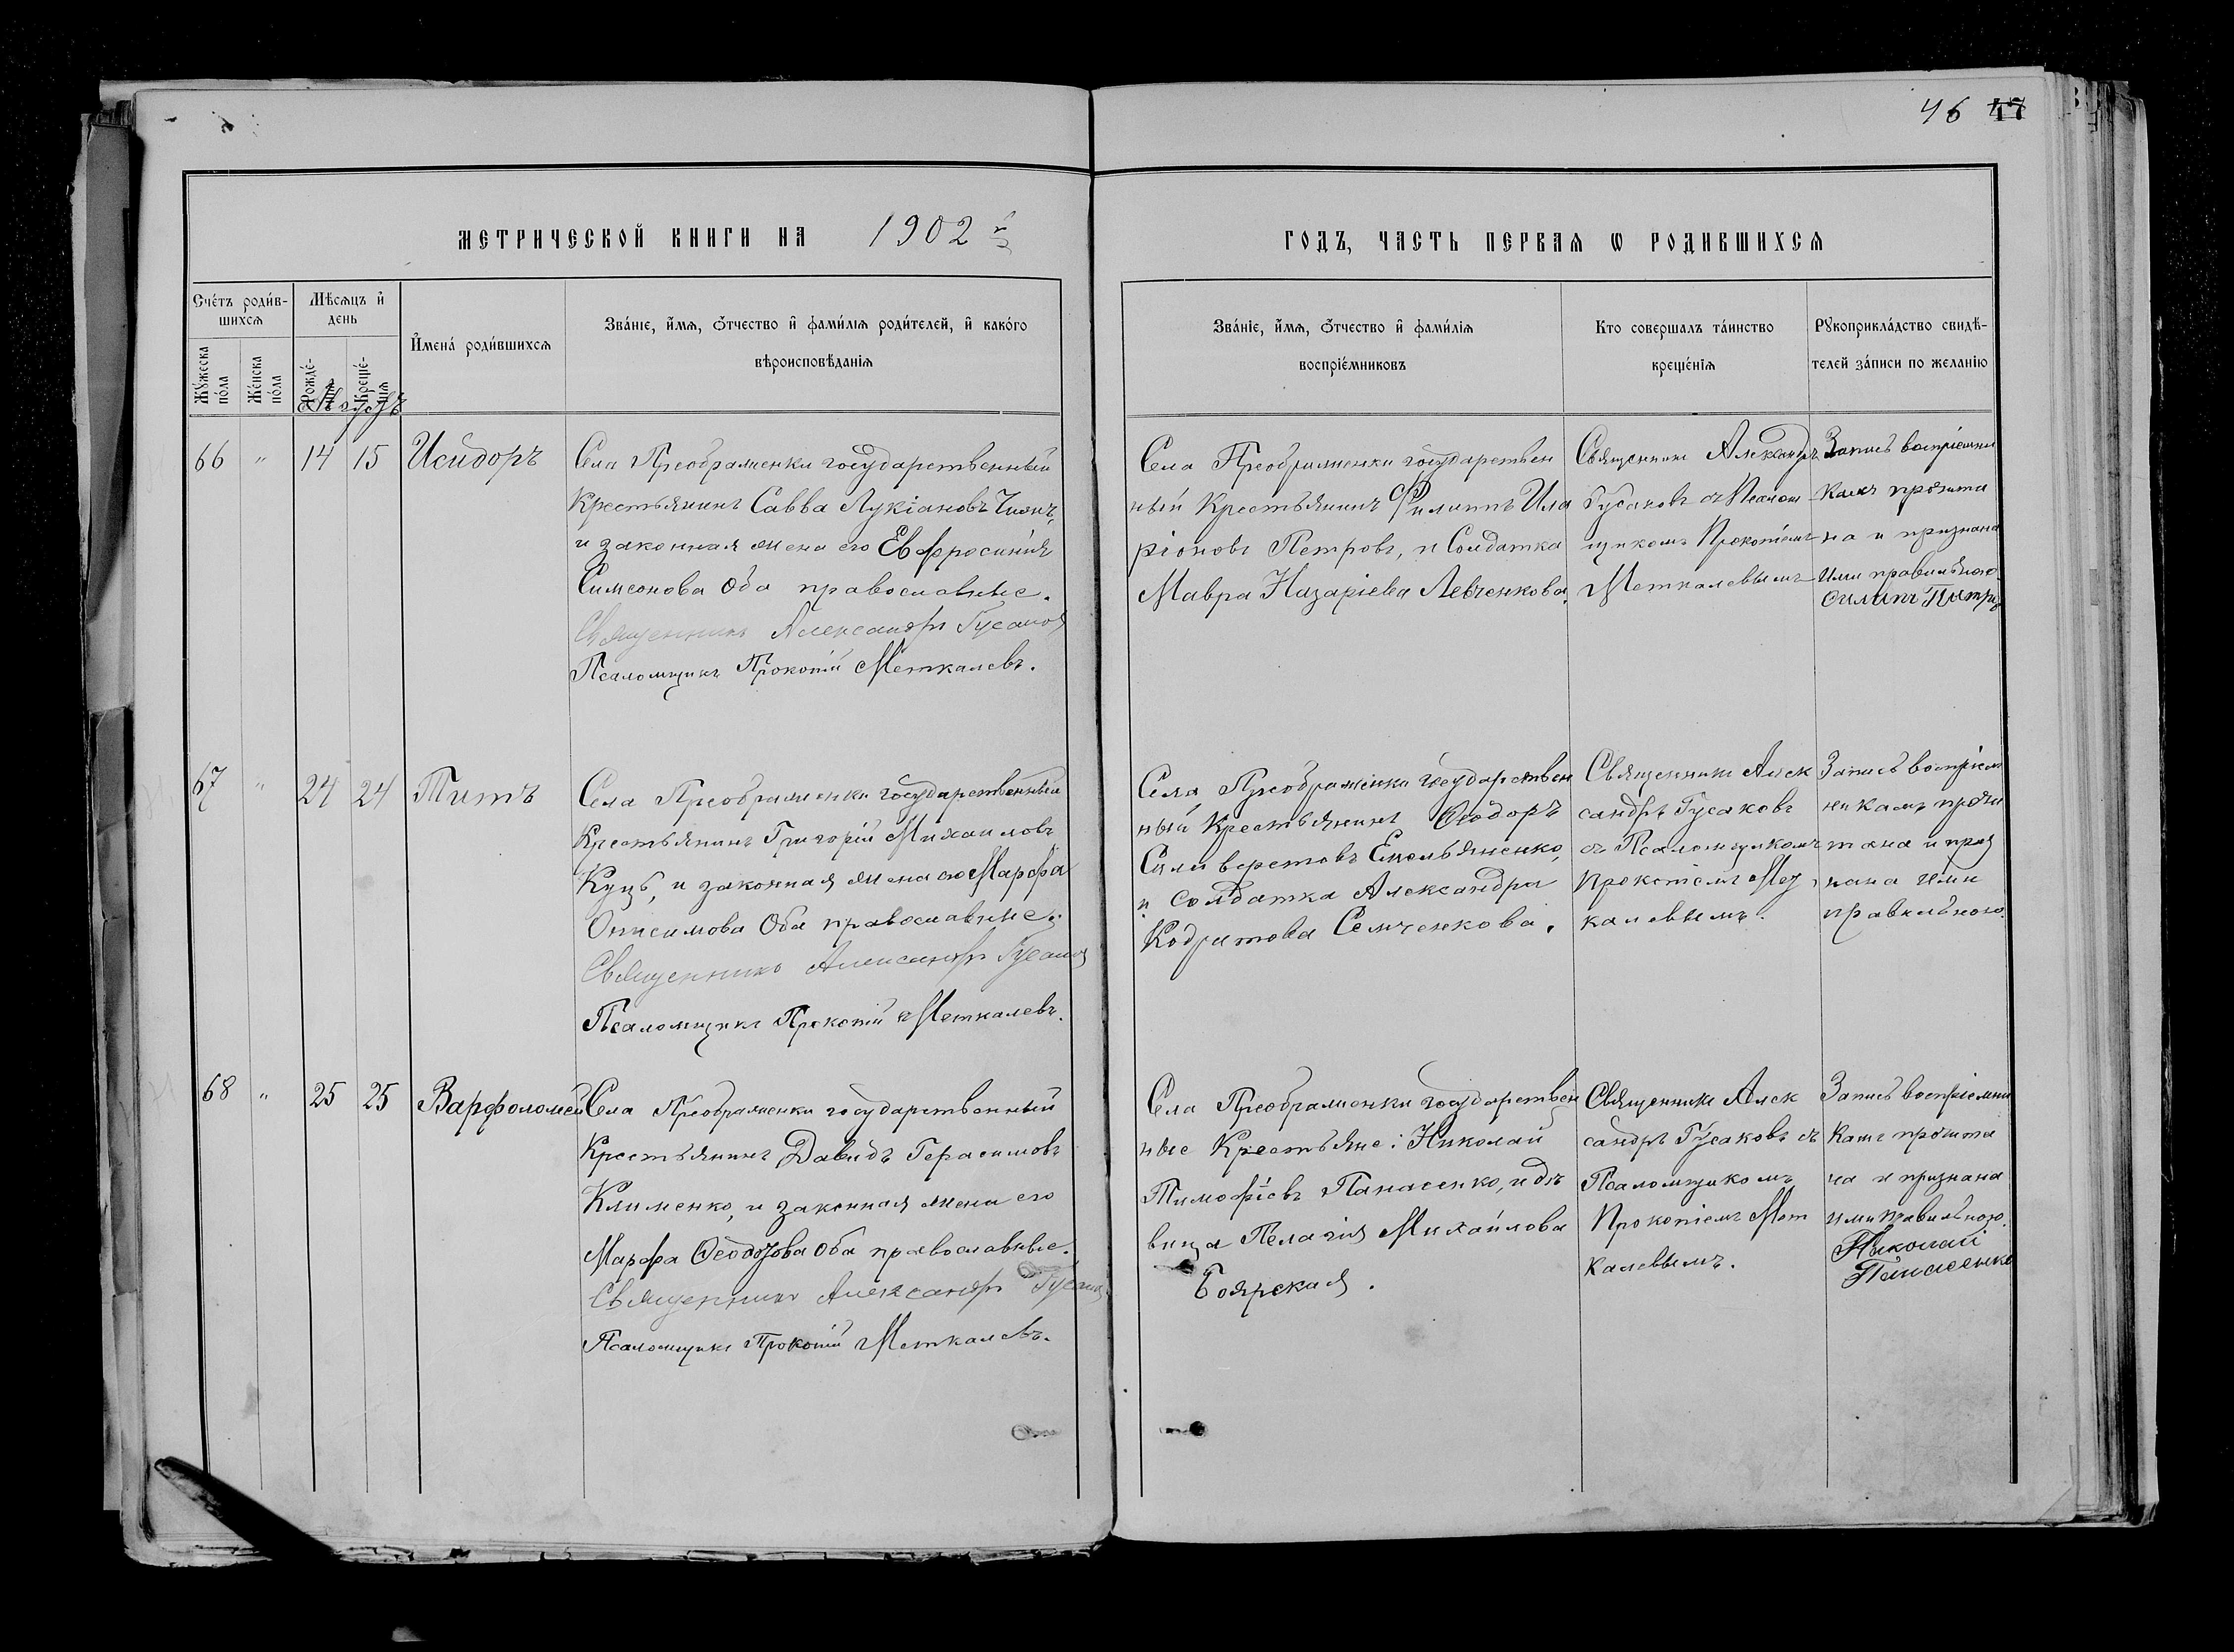 46 47
МЕТРИЧЕСКОЙ КНИГИ НА 1902 й
ГОДЪ, ЧАСТЬ ПЕРВАЯ Ѡ РОДИВШИХСЯ
Счетъ родив-
шихся
Мѣсяцъ и
день
Мужеска
пола
Женска
пола
Рожде-
нія
Креще-
нія
Имена родившихся
Званіе, имя, отчество и фамилія родителей, и какого
вѣроисповѣданія
Званіе, имя, отчество и фамилія
воспріемниковъ
Кто совершалъ таинство
крещенія
Рукоприкладство свидѣ-
телей записи по желанію
Августъ
66 " 14 15 Исидоръ
Села Преображенки государственный
Крестьянинъ Савва Лукіановъ
и законная жена его Евфросинія
Симеонова Оба православные.
Священникъ Александръ Гусаковъ
Псаломщикъ Прокопій Меткалевъ.
Села Преображенки государствен
ный Крестьянинъ Филиппъ Ила
ріоновъ Петровъ, и Солдатка
Мавра Назаріева Левченкова.
Священникъ Александръ
Гусаковъ съ Псалом
щикомъ Прокопіемъ
Меткалевымъ
Запись воспріемни
камъ прочита
на и признана
ими правильною.
Филипъ Петровъ
67 " 24 24 Титъ
Села Преображенки государственный
Крестьянинъ Григорій Михаиловъ
Куцъ, и законная жена его Марфа
Онисимова Оба православные.
Священникъ Александръ Гусаковъ
Псаломщикъ Прокопій Меткалевъ.
Села Преображенки государствен
ный Крестьянинъ Ѳеодоръ
Селиверстовъ Емельяненко,
и солдатка Александра
Кодратова Семченкова.
Священникъ Алек
сандръ Гусаковъ
съ Псаломщикомъ
Прокопіемъ Мет
калевымъ.
Запись воспріем
никамъ прочи
тана и приз
нана ими
правильною.
68 " 25 25 Варфоломей
Села Преображенки государственный
Крестьянинъ Давидъ Герасимовъ
Клименко, и законная жена его
Марфа Ѳеодорова Оба православные.
Священникъ Александръ Гусаковъ
Псаломщикъ Прокопій Меткалевъ.
Села Преображенки государствен
ные Крестьяне: Николай
Тимофіевъ Панасенко, и дѣ
вица Пелагія Михайлова
Боярская.
Священникъ Алек
сандръ Гусаковъ съ
Псаломщикомъ
Прокопіемъ Мет
калевымъ.
Запись воспріемни
камъ прочита
на и признана
ими правильною.
Николай
Панасенко